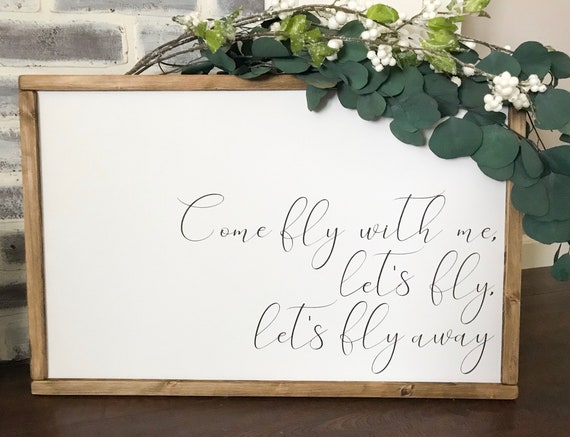 Come fly with me,
let's fly,
let's fly away